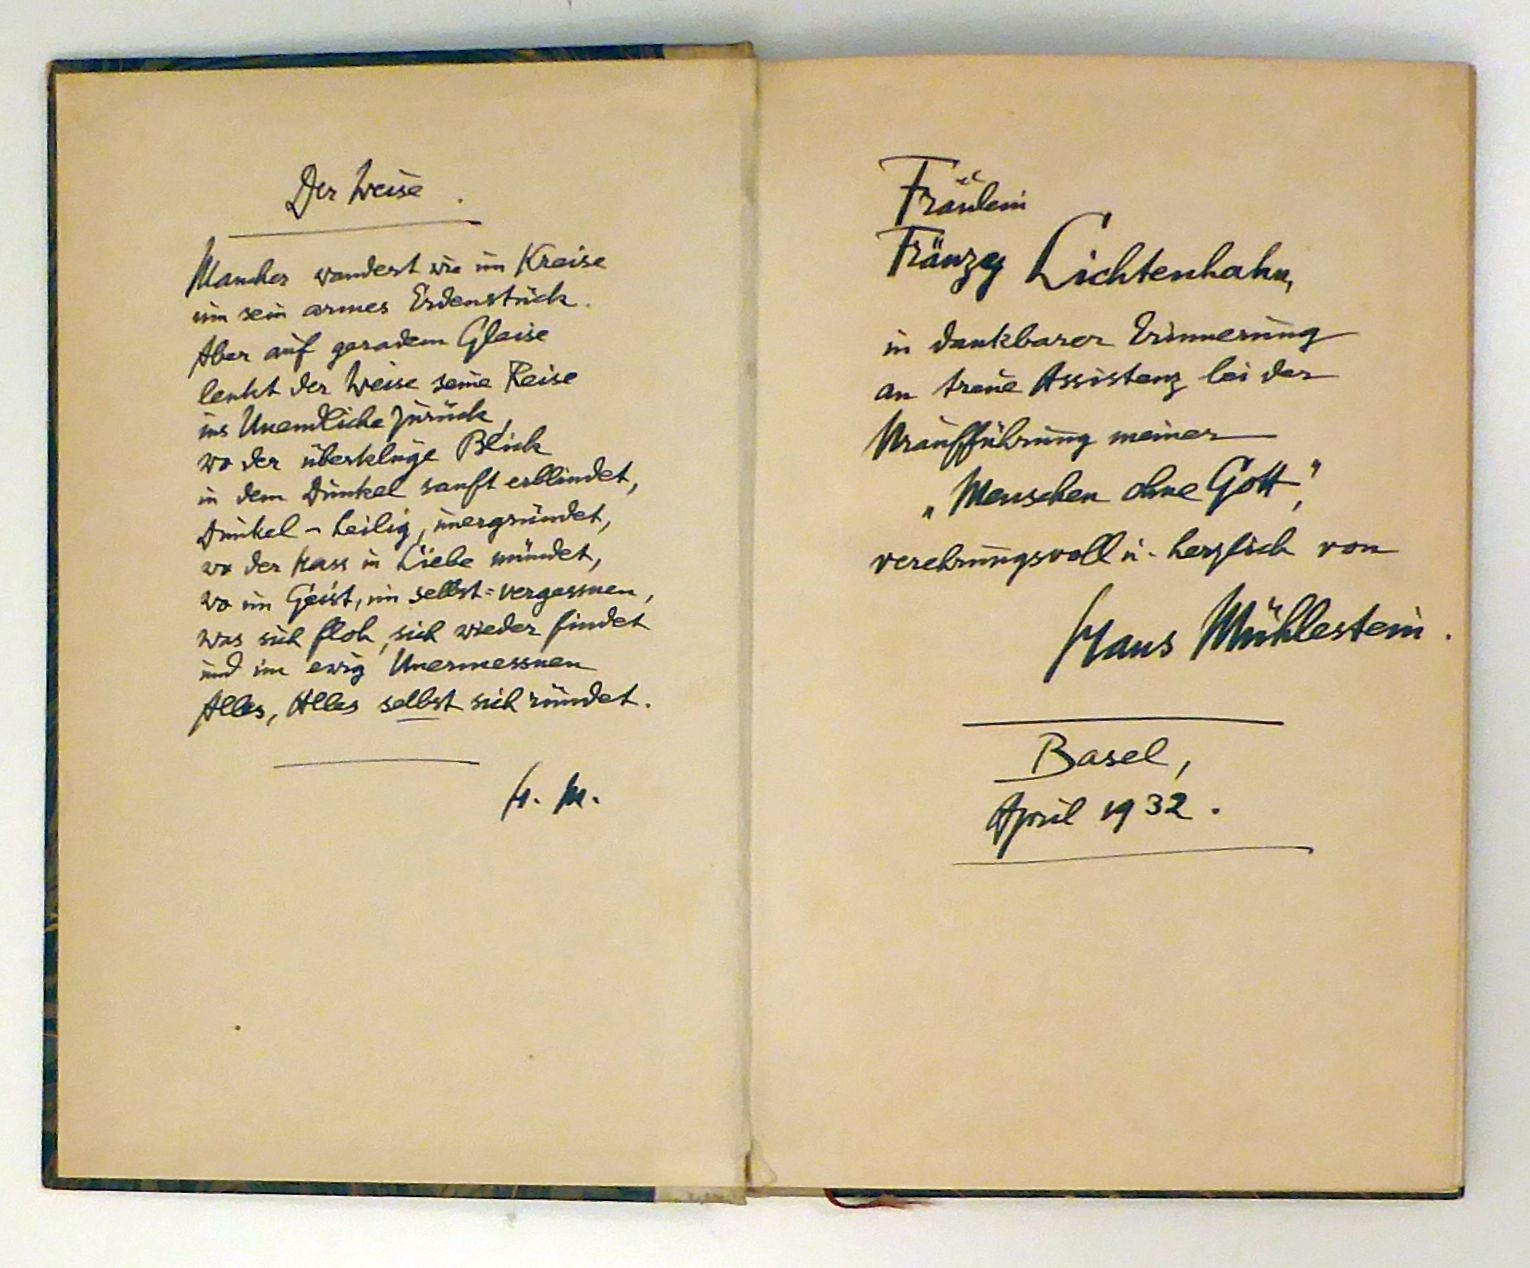 Der Weise.
Mancher wandert wie im Kreise
um sein armes Erdenstück.
Aber auf geradem Gleise
lenkt der Weise seine Reise
ins Unendliche zurück,
wo der überkluge Blick
in dem Dunkel sanft erblindet,
Dunkel-heilig, unergründet,
wo der Hass in Liebe mündet,
wo im Geist, im selbst=vergessnen,
was sich floh, sich wieder findet
und im ewig Unermessnen
Alles, Alles selbst sich ründet.
H. M.
Fräulein
Fränzy Lichtenhahn,
in dankbarer Erinnerung
an treue Assistenz bei der
Uraufführung meiner
„Menschen ohne Gott",
verehrungsvoll u. herzlich von
Hans Mühlestein.
Basel,
April 1932.